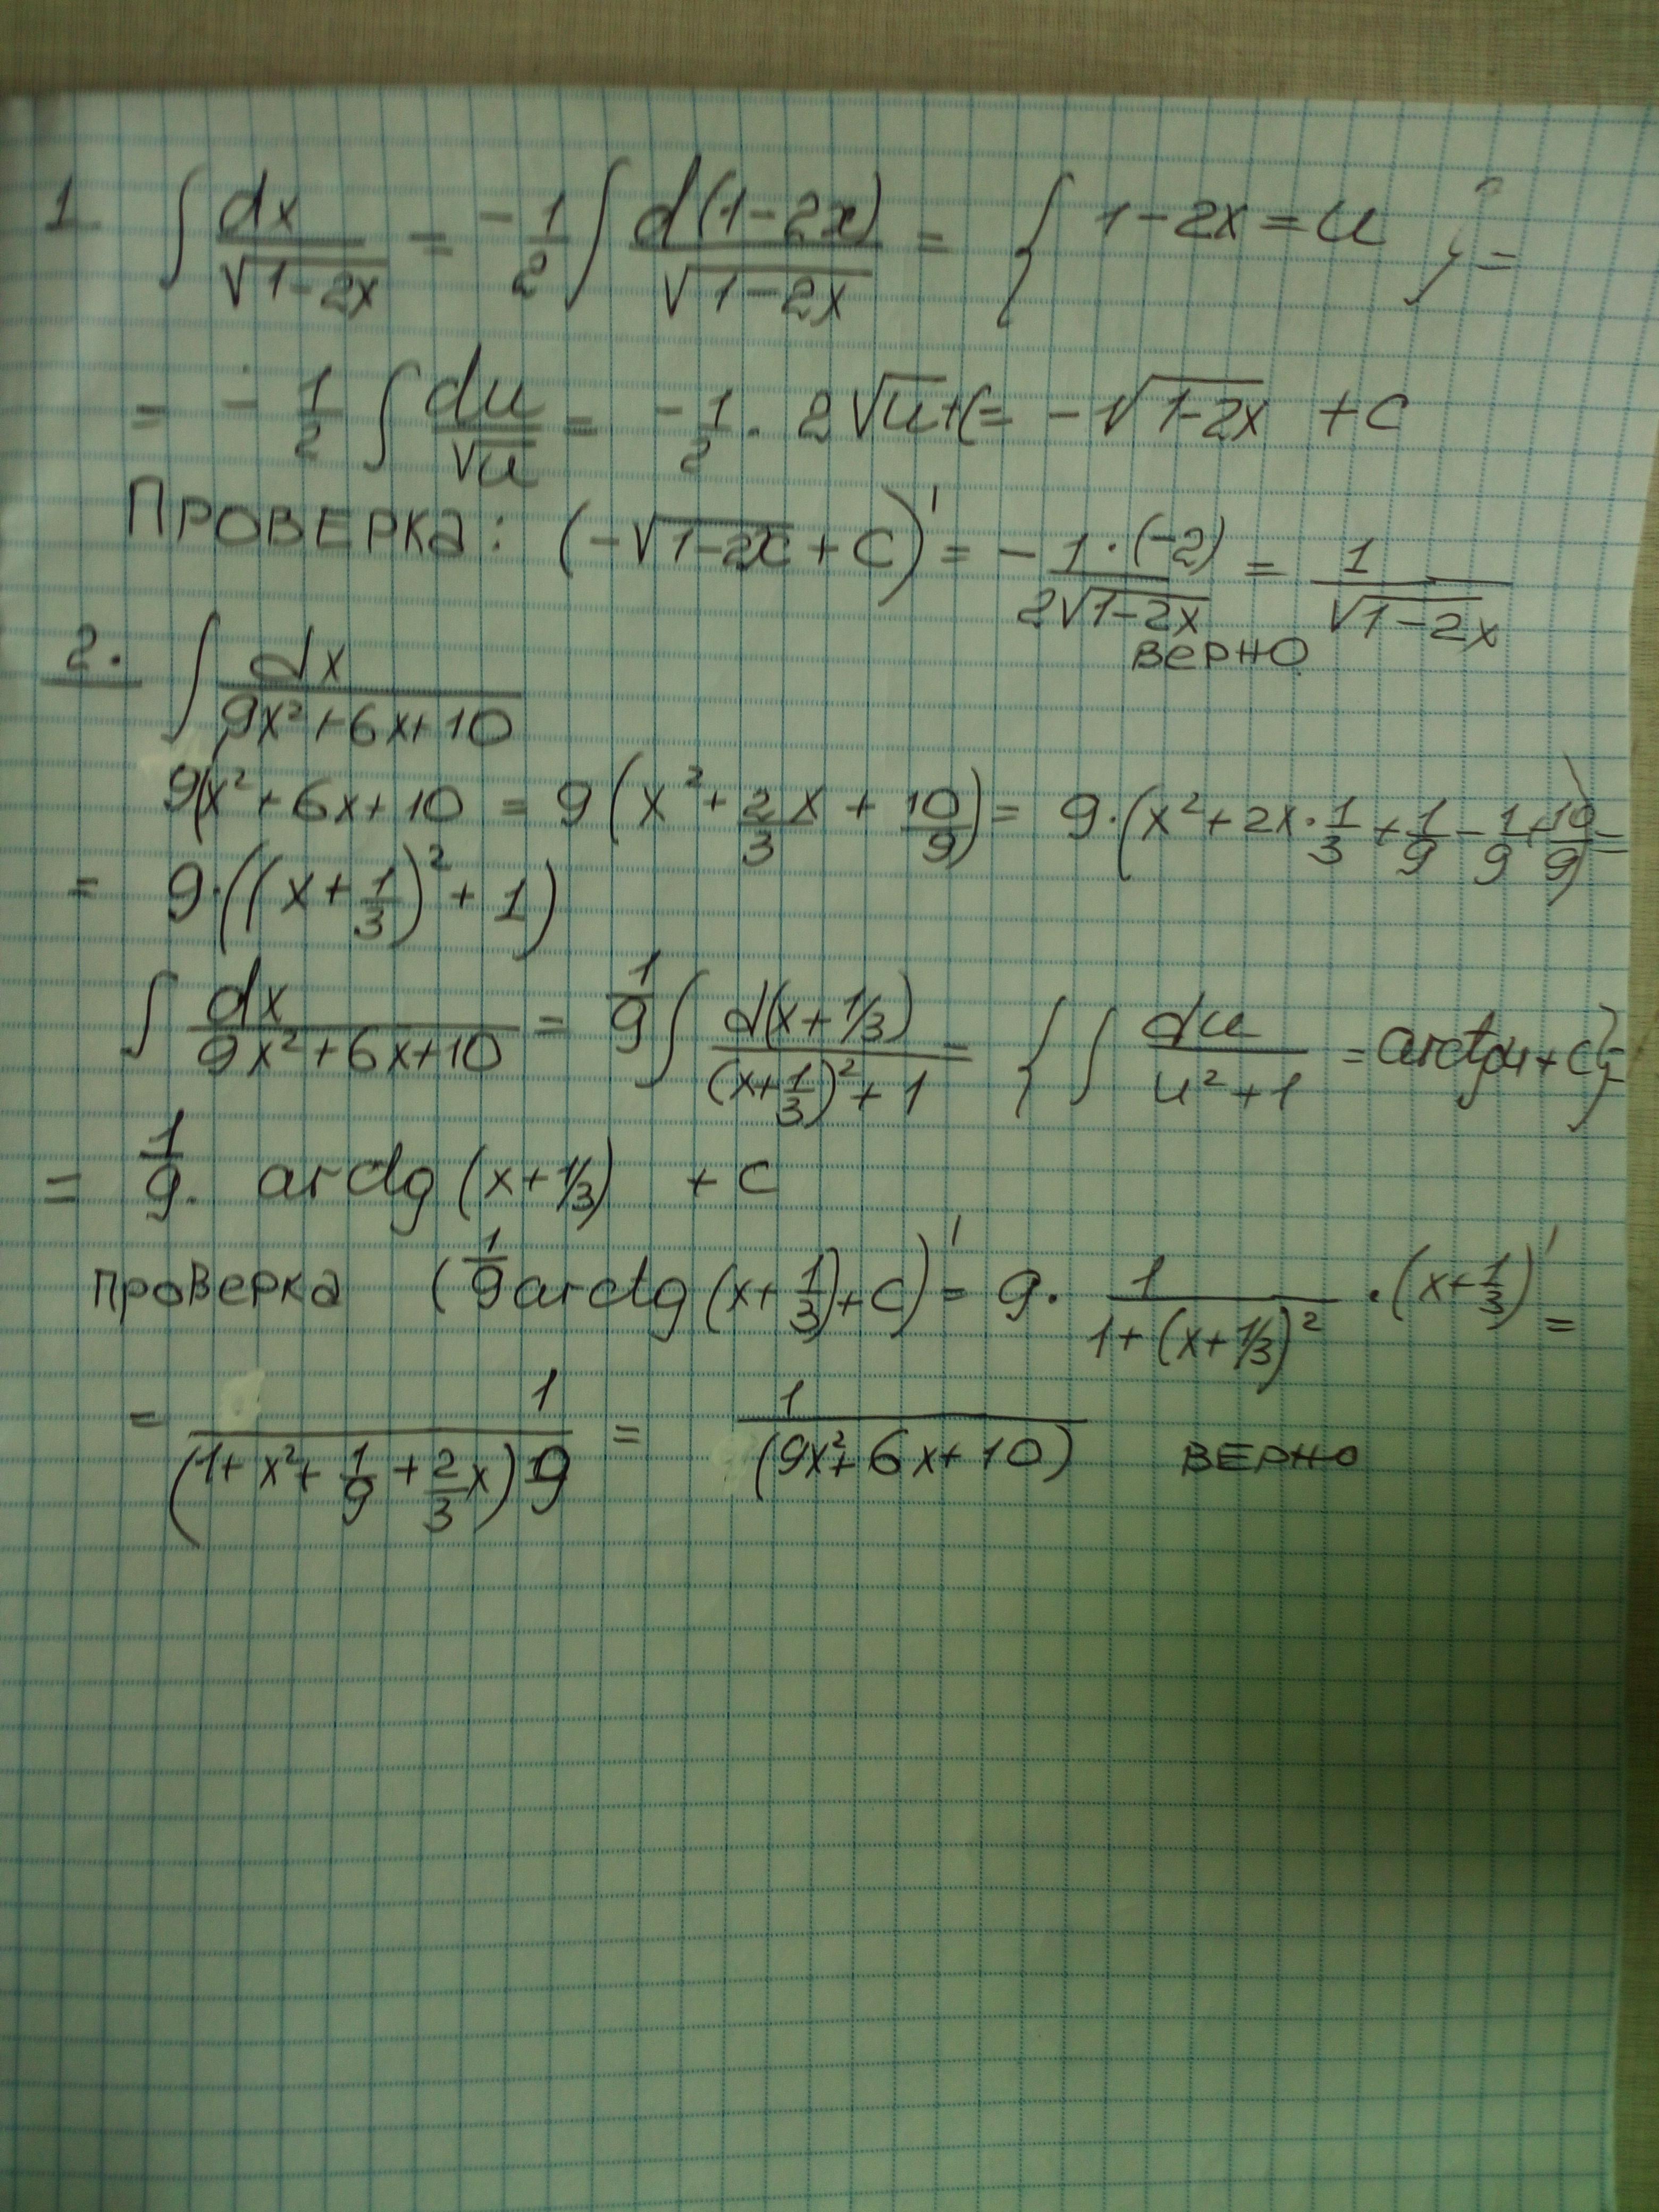 1. ∫ dx/√(1-2x) = -1/2 ∫ d(1-2x)/√(1-2x) = { 1-2x = u } =
= -1/2 ∫ du/√u = -1/2 · 2√u + C = -√(1-2x) + C
ПРОВЕРКА: (-√(1-2x) + C)' = - 1·(-2)/(2√(1-2x)) = 1/√(1-2x)
верно
2. ∫ dx/(9x²+6x+10)
9x²+6x+10 = 9(x² + 2/3 x + 10/9) = 9·(x² + 2x·1/3 + 1/9 - 1/9 + 10/9) =
= 9·((x+1/3)² + 1)
∫ dx/(9x²+6x+10) = 1/9 ∫ d(x+1/3)/((x+1/3)²+1) = { ∫ du/(u²+1) = arctgu + C } =
= 1/9 · arctg(x+1/3) + C
проверка (1/9 arctg(x+1/3)+C)' = 9 · 1/(1+(x+1/3)²) · (x+1/3)' =
= 1/((1+x²+1/9+2/3 x) 9) = 1/(9x²+6x+10) ВЕРНО